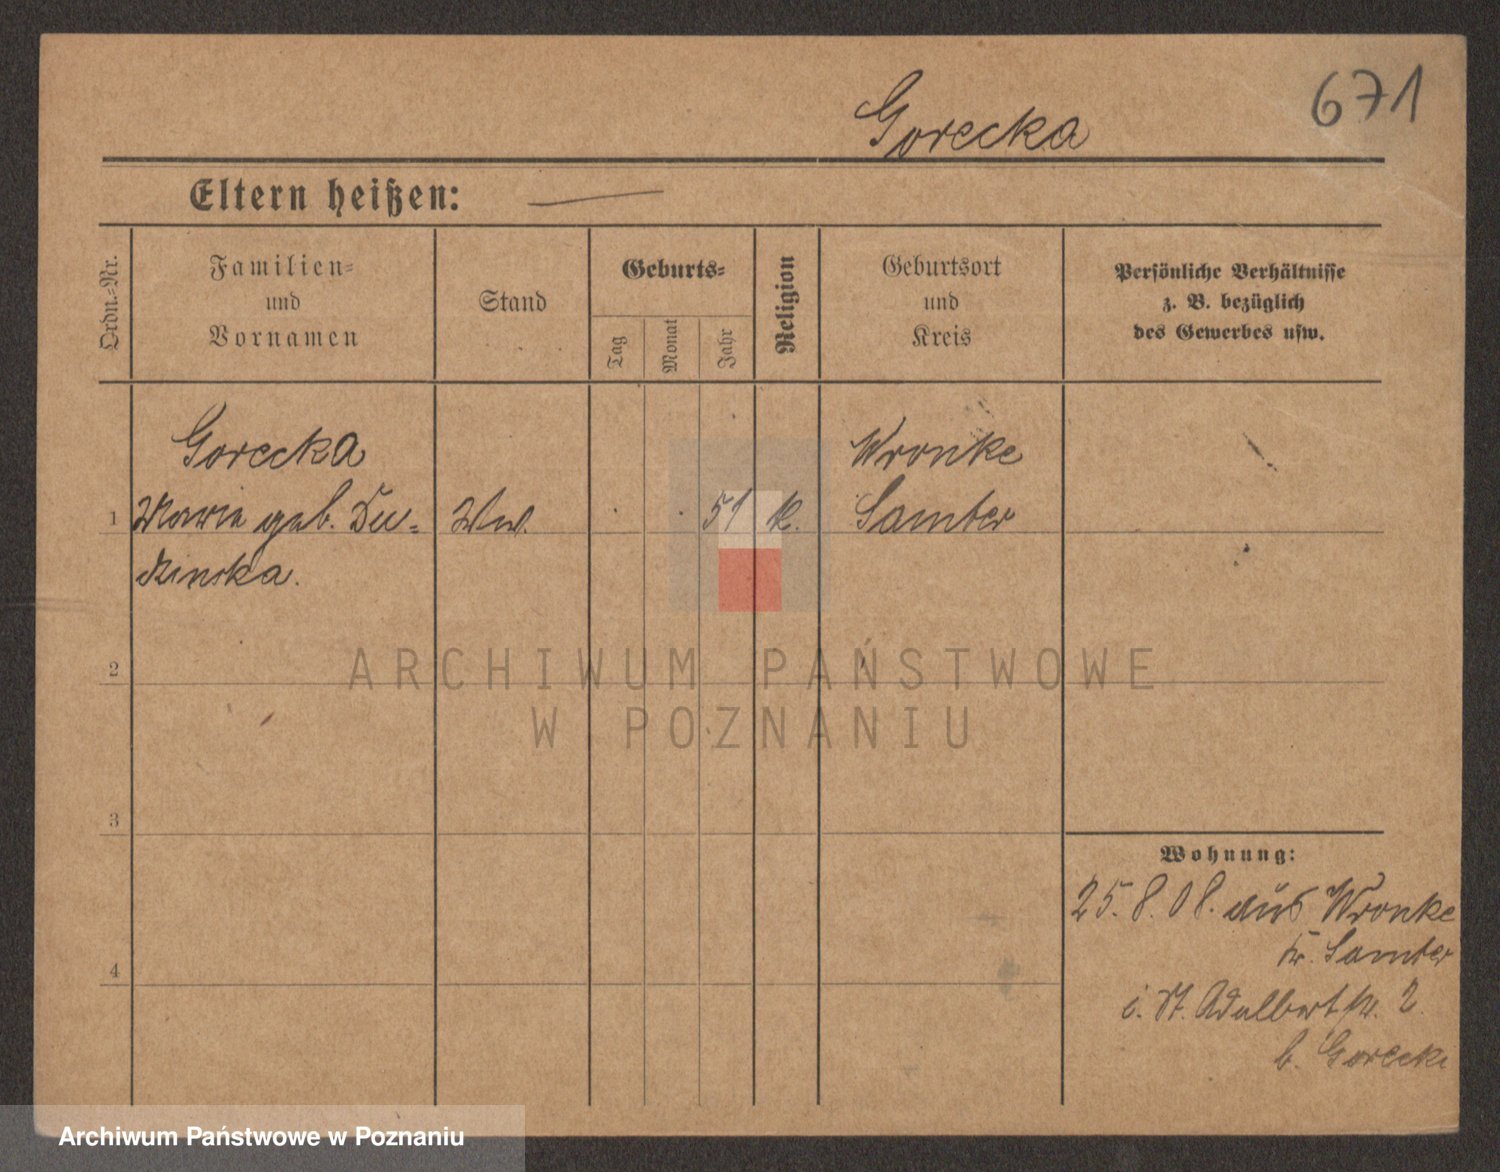 671
Gorecka
Eltern heißen: —
Ordn.-Nr.
Familien-
und
Vornamen
Stand
Geburts-
Tag
Monat
Jahr
Religion
Geburtsort
und
Kreis
Persönliche Verhältnisse
z. B. bezüglich
des Gewerbes usw.
Gorecka
Wronke
1 Maria geb. Du- Ww. 51 k. Samter
dzinska.
ARCHIWUM PAŃSTWOWE
2
W POZNANIU
3
Wohnung:
25. 8. 08. aus Wronke
Kr. Samter
4
i. St. Adalbertstr. 2.
b. Gorecki
Archiwum Państwowe w Poznaniu